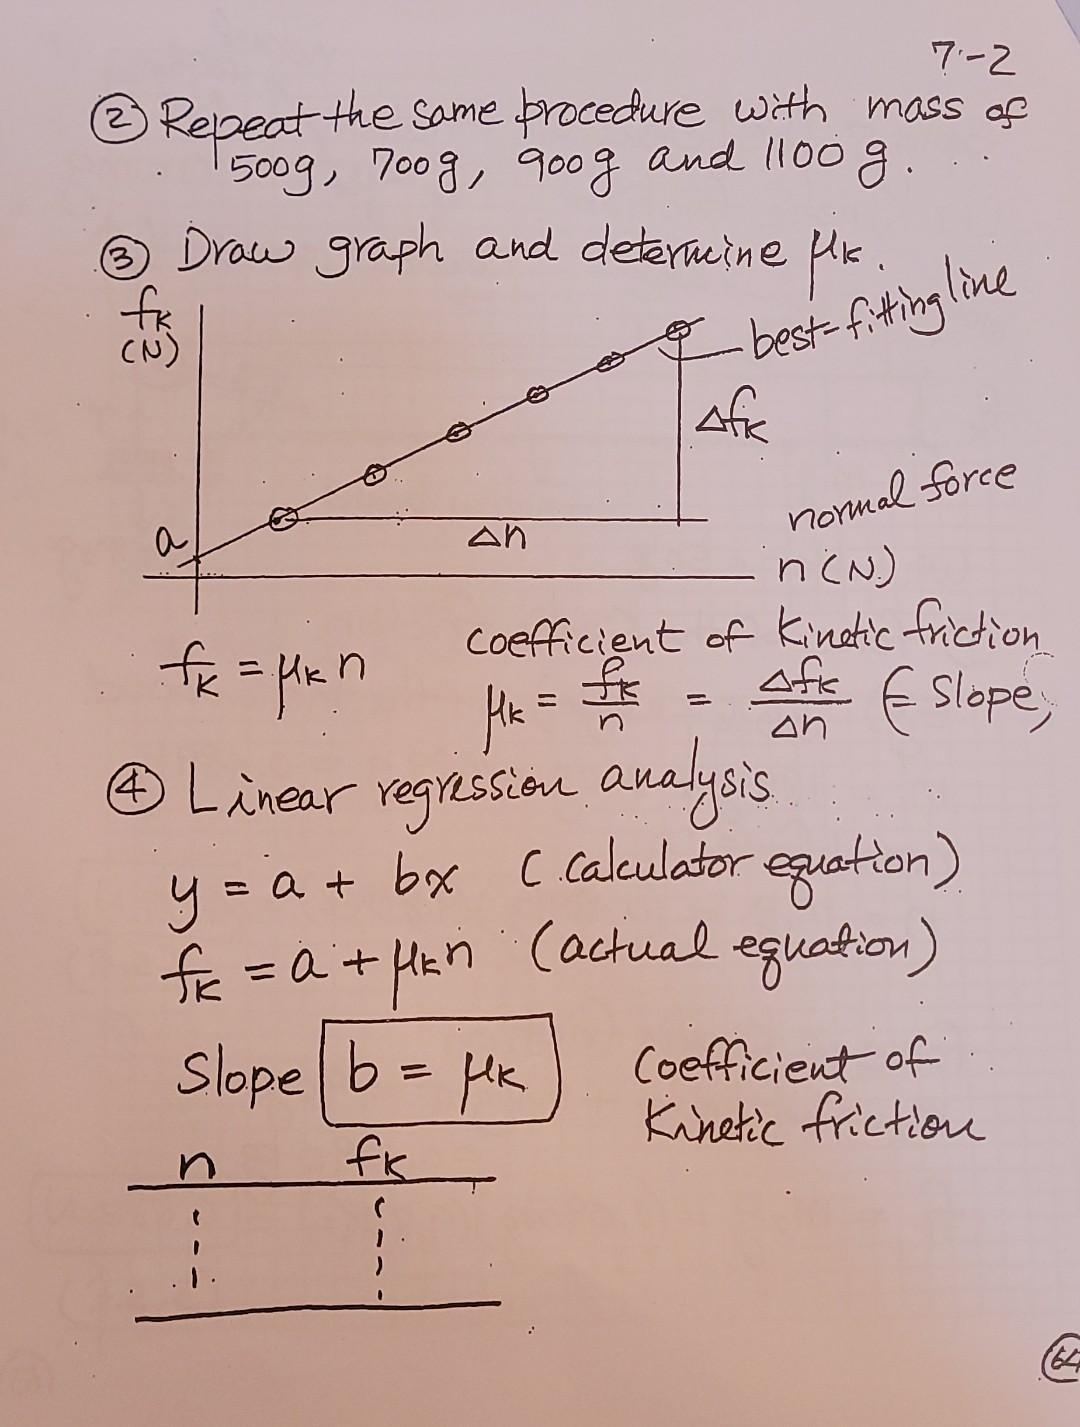 7-2
② Repeat the same procedure with mass of
500g, 700g, 900g and 1100g.
③ Draw graph and determine μk.
fk
(N)
best-fitting line
Δfk
a
Δn
normal force
n (N)
fk = μk n
coefficient of kinetic friction
μk = fk/n = Δfk/Δn ( = Slope)
④ Linear regression analysis
y = a + bx (calculator equation)
fk = a + μkn (actual equation)
Slope b = μk
Coefficient of
kinetic friction
n fk